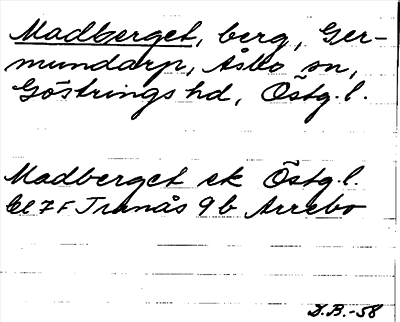 Madberget, berg, Ger-
mundarp, Åsbo sn,
Göstrings hd, Östg.l.
Madberget ek Östg.l.
bl 7F Tranås 9b Arrebo
D.B.-58